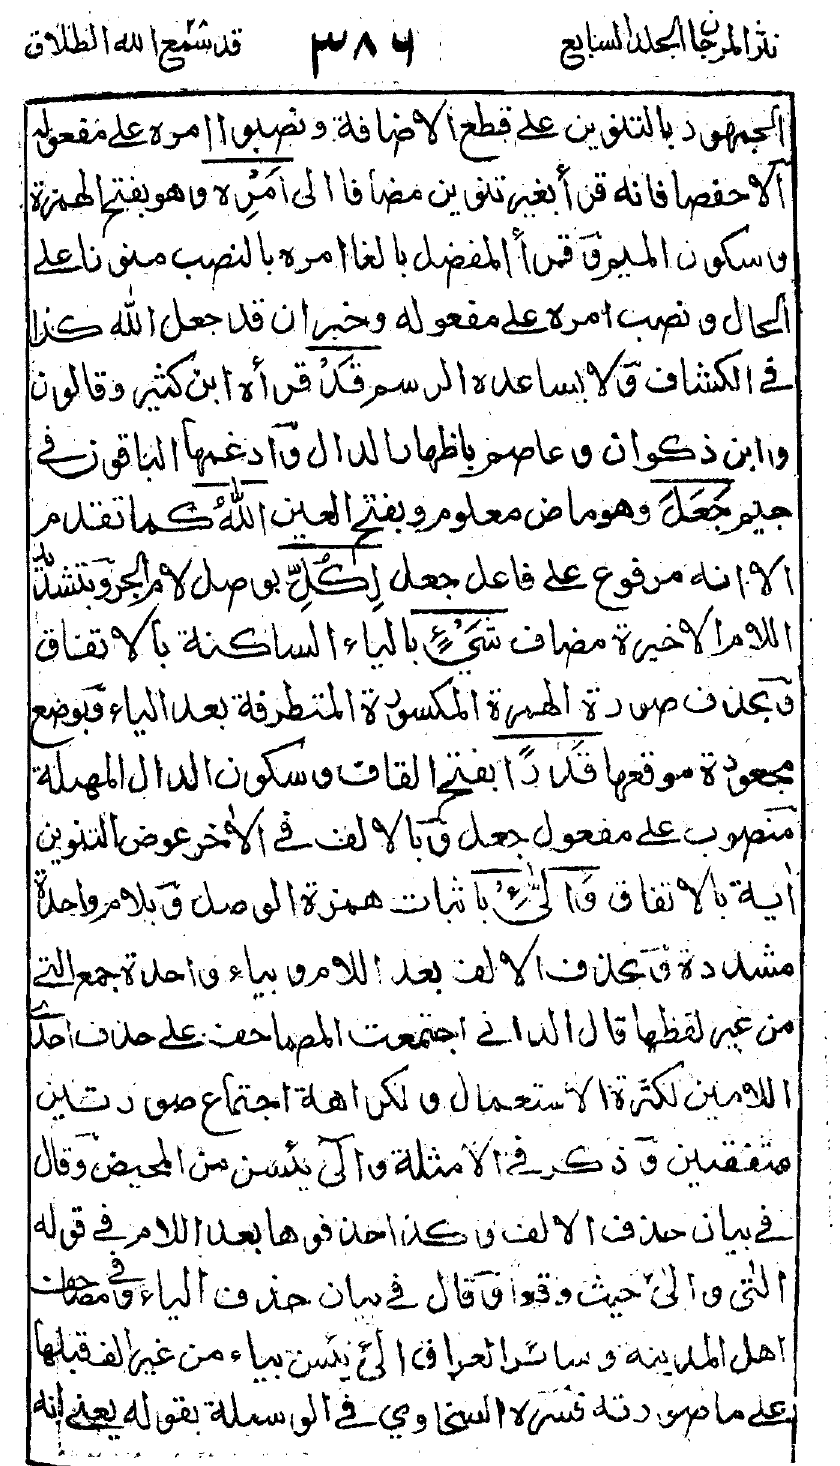 نثر المرجان المجلد السابع ٣٨٦ قد سمع الله الطلاق
الجمهور بالتنوين على قطع الاضافة ونصبوا امره على مفعوله
الا حفصا فانه قرأ بغير تنوين مضافا الى اَمْرِه وهو بفتح الهمزة
وسكون الميم وقرأ المفضل بالغا امره بالنصب منونا على
الحال ونصب امره على مفعوله وخبر ان قد جعل الله كذا
فى الكشاف ولا يساعده الرسم قَدْ قرأه ابن كثير وقالون
وابن ذكوان وعاصم باظهار الدال وادغمها الباقون فى
جيم جَعَلَ وهو ماض معلوم وبفتح العين اللّٰهُ كما تقدم
الا انه مرفوع على فاعل جعل لِكُلِّ بوصل لام الجر وبتشديد
اللام الاخيرة مضاف شَيْءٍ بالياء الساكنة بالاتفاق
وبحذف صورة الهمزة المكسورة المتطرفة بعد الياء وبوضع
مجعودة موقعها قَدْرًا بفتح القاف وسكون الدال المهملة
منصوب على مفعول جعل وبالالف فى الأخر عوض التنوين
أية بالاتفاق وَالّٰئِ باثبات همزة الوصل وبلام واحدة
مشددة وبحذف الالف بعد اللام وبياء واحدة جمع التى
من غير لفظها قال الدانى اجتمعت المصاحف على حذف احد
اللامين لكثرة الاستعمال ولكراهة اجتماع صورتين
متفقتين وذكر فى الامثلة والئ يئسن من المحيض وقال
فى بيان حذف الالف وكذا حذفوها بعد اللام فى قوله
التى والئ حيث وقعوا وقال فى بيان حذف الياء وفى مصاحف
اهل المدينه وسائر العراق الئ يئسن بياء من غير الف قبلها
على ما صورته فسره السخاوي فى الوسيلة بقوله يعنى انه